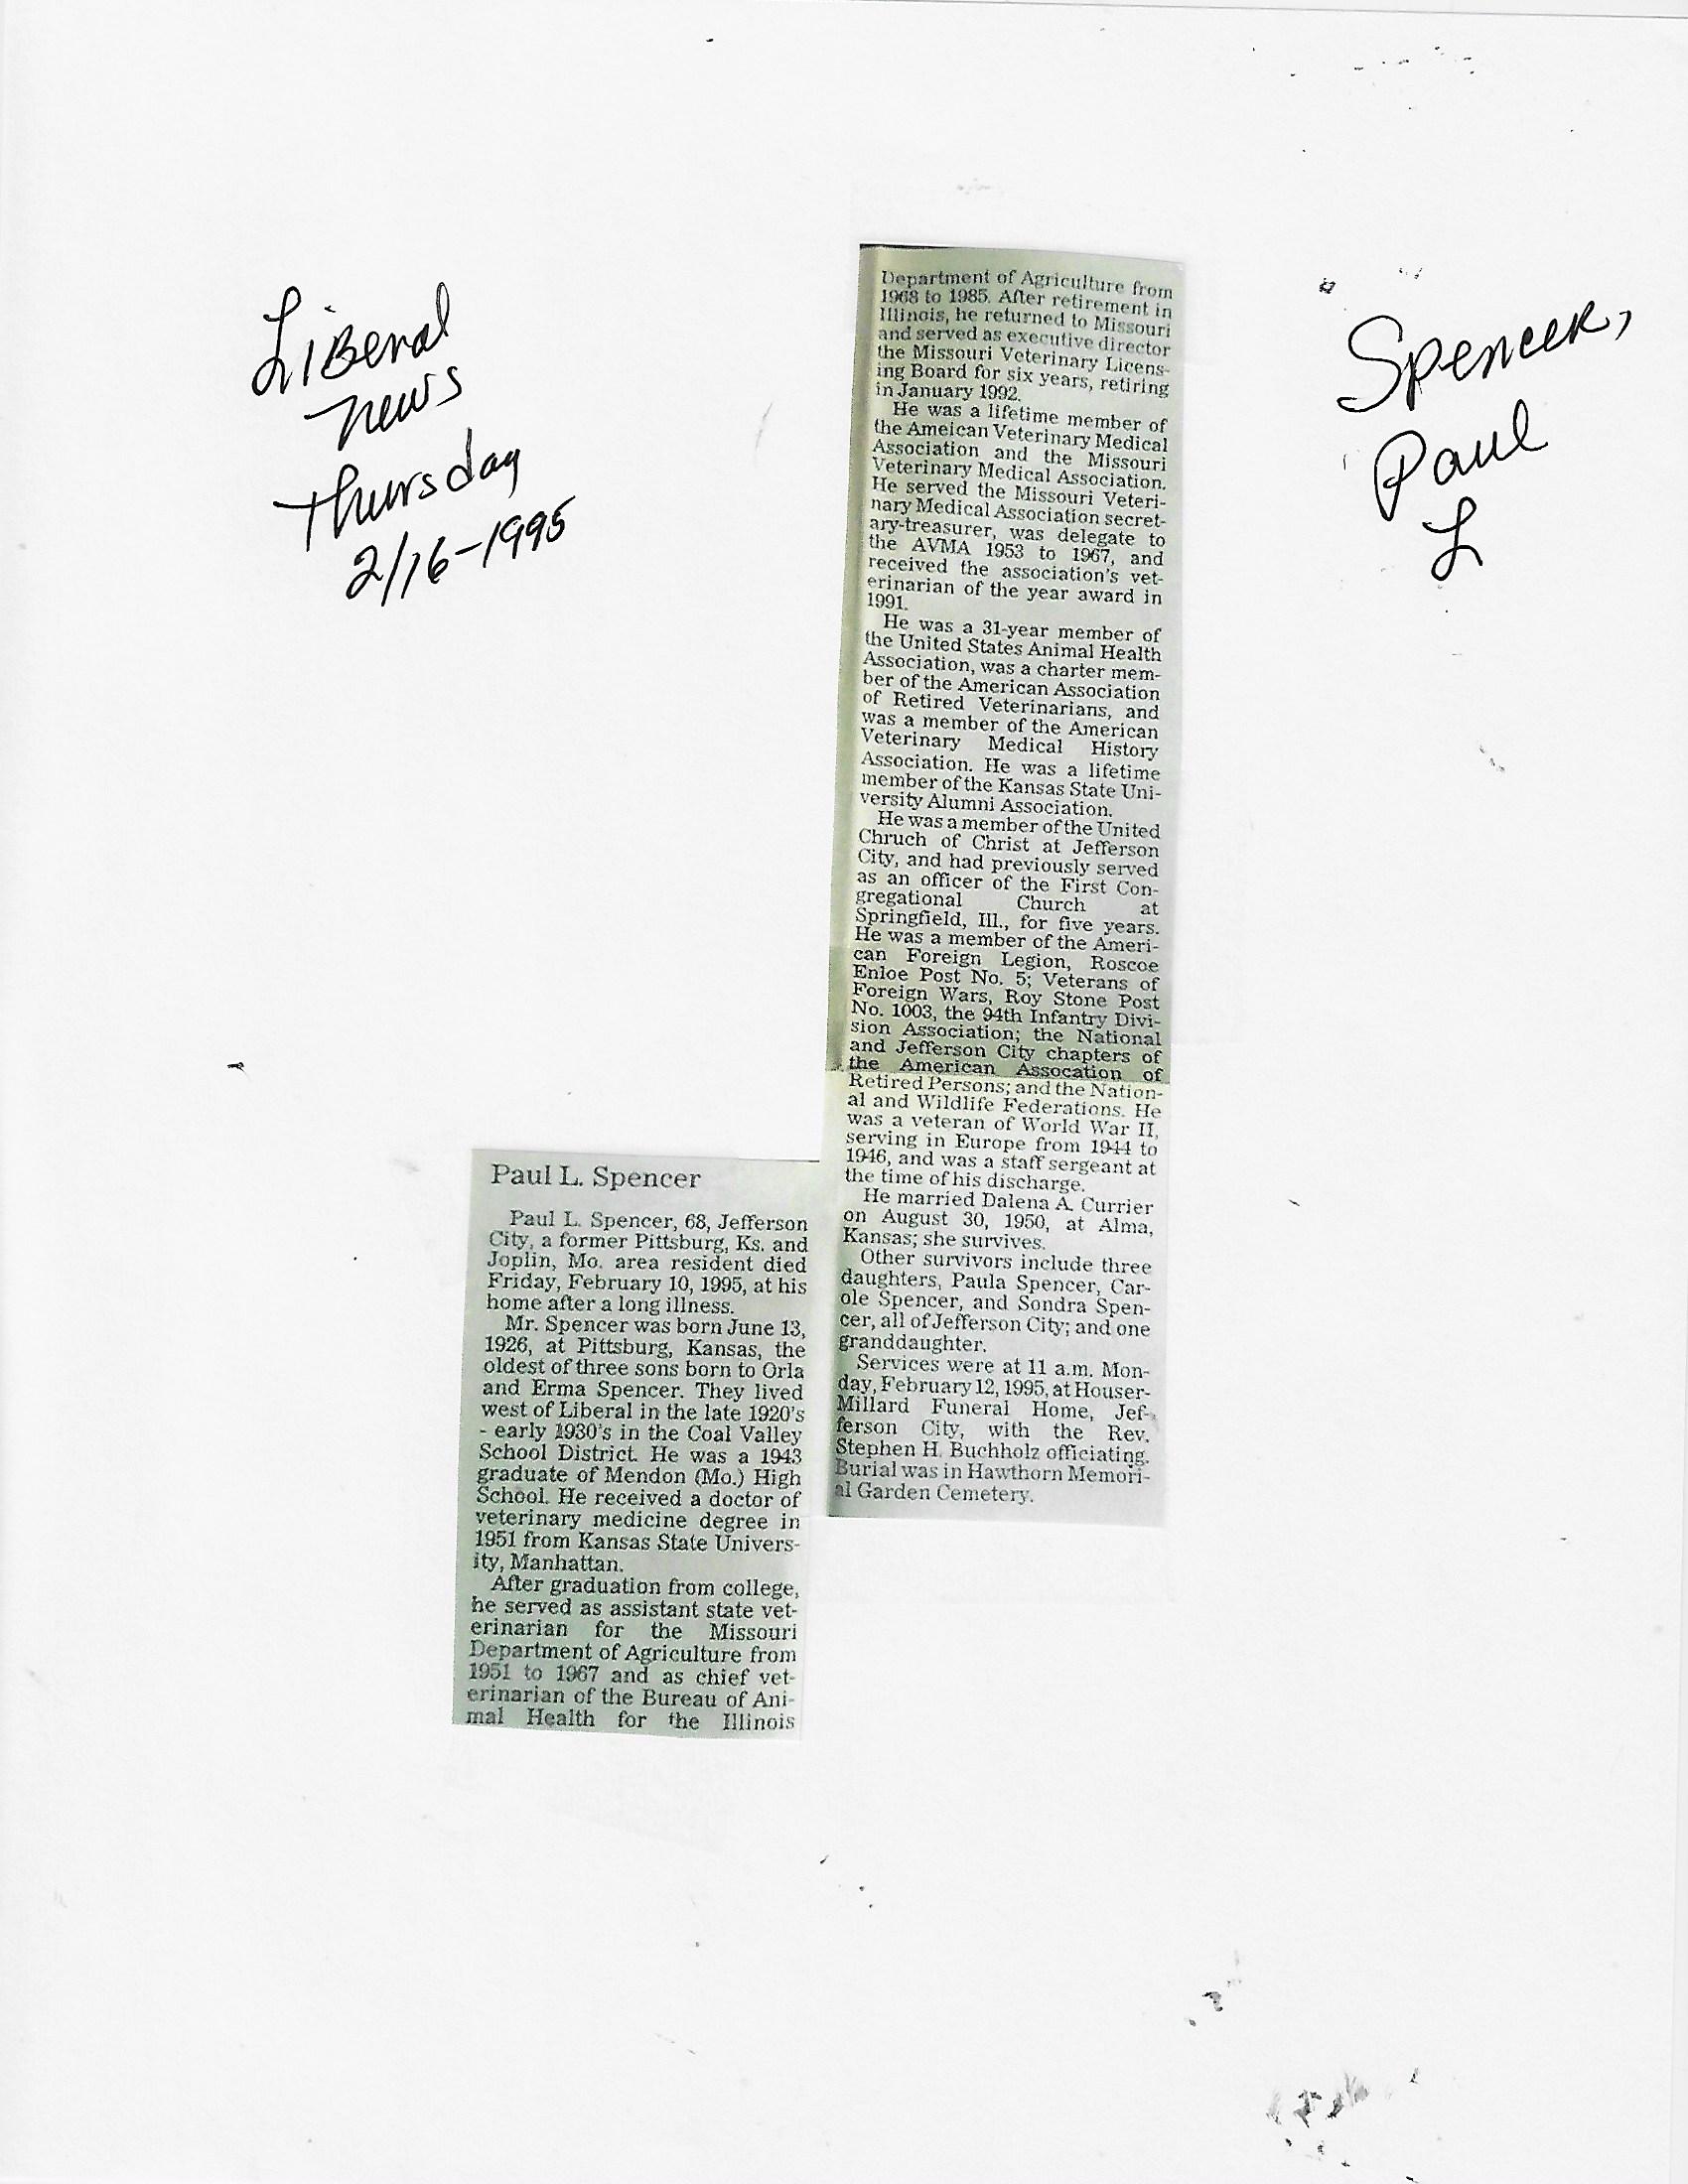 Liberal
News
Thursday
2/16-1995
Spencer,
Paul
L
Paul L. Spencer
Paul L. Spencer, 68, Jefferson
City, a former Pittsburg, Ks. and
Joplin, Mo. area resident died
Friday, February 10, 1995, at his
home after a long illness.
Mr. Spencer was born June 13,
1926, at Pittsburg, Kansas, the
oldest of three sons born to Orla
and Erma Spencer. They lived
west of Liberal in the late 1920's
- early 1930's in the Coal Valley
School District. He was a 1943
graduate of Mendon (Mo.) High
School. He received a doctor of
veterinary medicine degree in
1951 from Kansas State Univers-
ity, Manhattan.
After graduation from college,
he served as assistant state vet-
erinarian for the Missouri
Department of Agriculture from
1951 to 1967 and as chief vet-
erinarian of the Bureau of Ani-
mal Health for the Illinois
Department of Agriculture from
1968 to 1985. After retirement in
Illinois, he returned to Missouri
and served as executive director
the Missouri Veterinary Licens-
ing Board for six years, retiring
in January 1992.
He was a lifetime member of
the Ameican Veterinary Medical
Association and the Missouri
Veterinary Medical Association.
He served the Missouri Veteri-
nary Medical Association secret-
ary-treasurer, was delegate to
the AVMA 1953 to 1967, and
received the association's vet-
erinarian of the year award in
1991.
He was a 31-year member of
the United States Animal Health
Association, was a charter mem-
ber of the American Association
of Retired Veterinarians, and
was a member of the American
Veterinary Medical History
Association. He was a lifetime
member of the Kansas State Uni-
versity Alumni Association.
He was a member of the United
Chruch of Christ at Jefferson
City, and had previously served
as an officer of the First Con-
gregational Church at
Springfield, Ill., for five years.
He was a member of the Ameri-
can Foreign Legion, Roscoe
Enloe Post No. 5; Veterans of
Foreign Wars, Roy Stone Post
No. 1003, the 94th Infantry Divi-
sion Association; the National
and Jefferson City chapters of
the American Assocation of
Retired Persons; and the Nation-
al and Wildlife Federations. He
was a veteran of World War II,
serving in Europe from 1944 to
1946, and was a staff sergeant at
the time of his discharge.
He married Dalena A. Currier
on August 30, 1950, at Alma,
Kansas; she survives.
Other survivors include three
daughters, Paula Spencer, Car-
ole Spencer, and Sondra Spen-
cer, all of Jefferson City; and one
granddaughter.
Services were at 11 a.m. Mon-
day, February 12, 1995, at Houser-
Millard Funeral Home, Jef-
ferson City, with the Rev.
Stephen H. Buchholz officiating.
Burial was in Hawthorn Memori-
al Garden Cemetery.